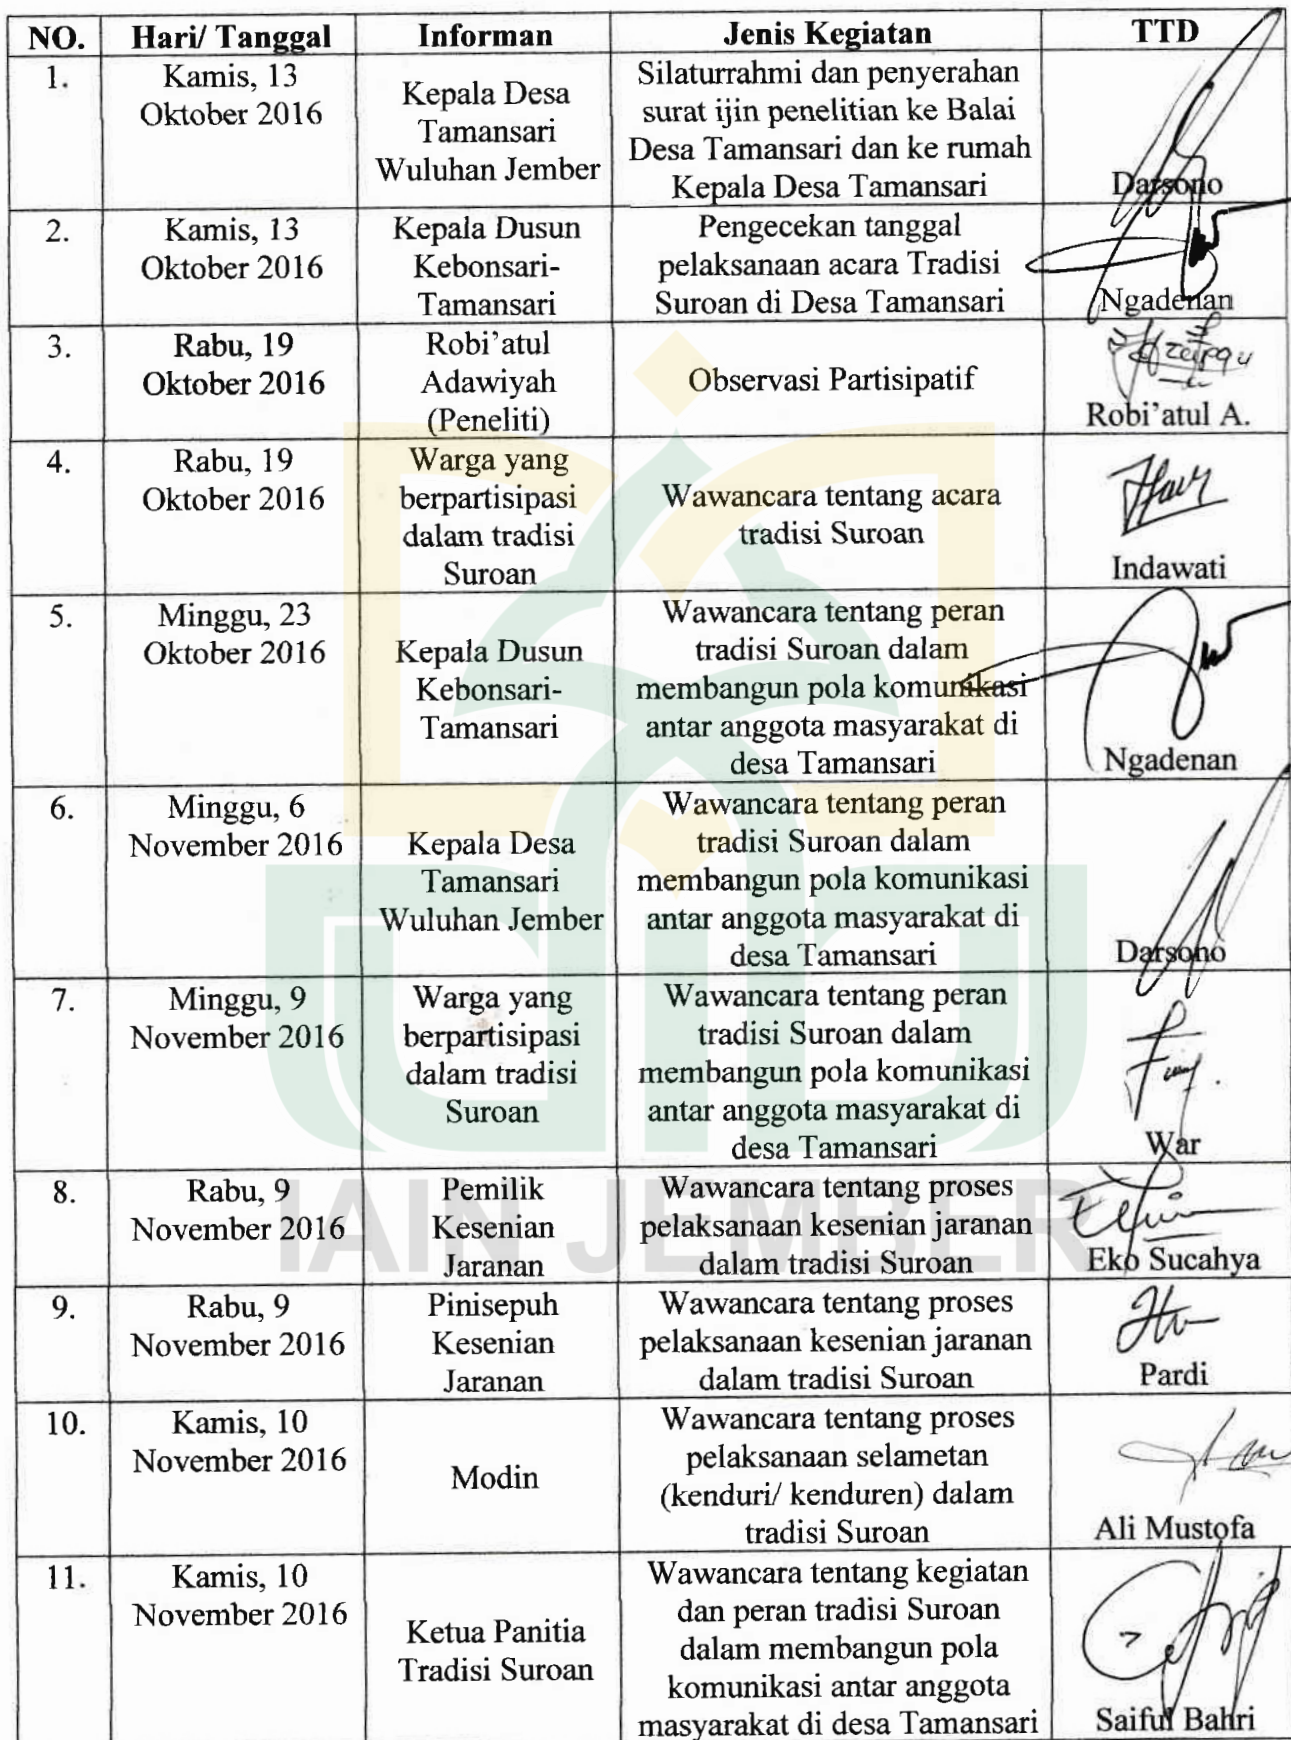 NO. Hari/ Tanggal Informan Jenis Kegiatan TTD
1. Kamis, 13
Oktober 2016
Kepala Desa
Tamansari
Wuluhan Jember
Silaturrahmi dan penyerahan
surat ijin penelitian ke Balai
Desa Tamansari dan ke rumah
Kepala Desa Tamansari
Darsono
2. Kamis, 13
Oktober 2016
Kepala Dusun
Kebonsari-
Tamansari
Pengecekan tanggal
pelaksanaan acara Tradisi
Suroan di Desa Tamansari
Ngadenan
3. Rabu, 19
Oktober 2016
Robi'atul
Adawiyah
(Peneliti)
Observasi Partisipatif
Robi'atul A.
4. Rabu, 19
Oktober 2016
Warga yang
berpartisipasi
dalam tradisi
Suroan
Wawancara tentang acara
tradisi Suroan
Indawati
5. Minggu, 23
Oktober 2016
Kepala Dusun
Kebonsari-
Tamansari
Wawancara tentang peran
tradisi Suroan dalam
membangun pola komunikasi
antar anggota masyarakat di
desa Tamansari
Ngadenan
6. Minggu, 6
November 2016
Kepala Desa
Tamansari
Wuluhan Jember
Wawancara tentang peran
tradisi Suroan dalam
membangun pola komunikasi
antar anggota masyarakat di
desa Tamansari
Darsono
7. Minggu, 9
November 2016
Warga yang
berpartisipasi
dalam tradisi
Suroan
Wawancara tentang peran
tradisi Suroan dalam
membangun pola komunikasi
antar anggota masyarakat di
desa Tamansari
War
8. Rabu, 9
November 2016
Pemilik
Kesenian
Jaranan
Wawancara tentang proses
pelaksanaan kesenian jaranan
dalam tradisi Suroan
Eko Sucahya
9. Rabu, 9
November 2016
Pinisepuh
Kesenian
Jaranan
Wawancara tentang proses
pelaksanaan kesenian jaranan
dalam tradisi Suroan
Pardi
10. Kamis, 10
November 2016
Modin
Wawancara tentang proses
pelaksanaan selametan
(kenduri/ kenduren) dalam
tradisi Suroan
Ali Mustofa
11. Kamis, 10
November 2016
Ketua Panitia
Tradisi Suroan
Wawancara tentang kegiatan
dan peran tradisi Suroan
dalam membangun pola
komunikasi antar anggota
masyarakat di desa Tamansari
Saiful Bahri
IAIN JEMBER